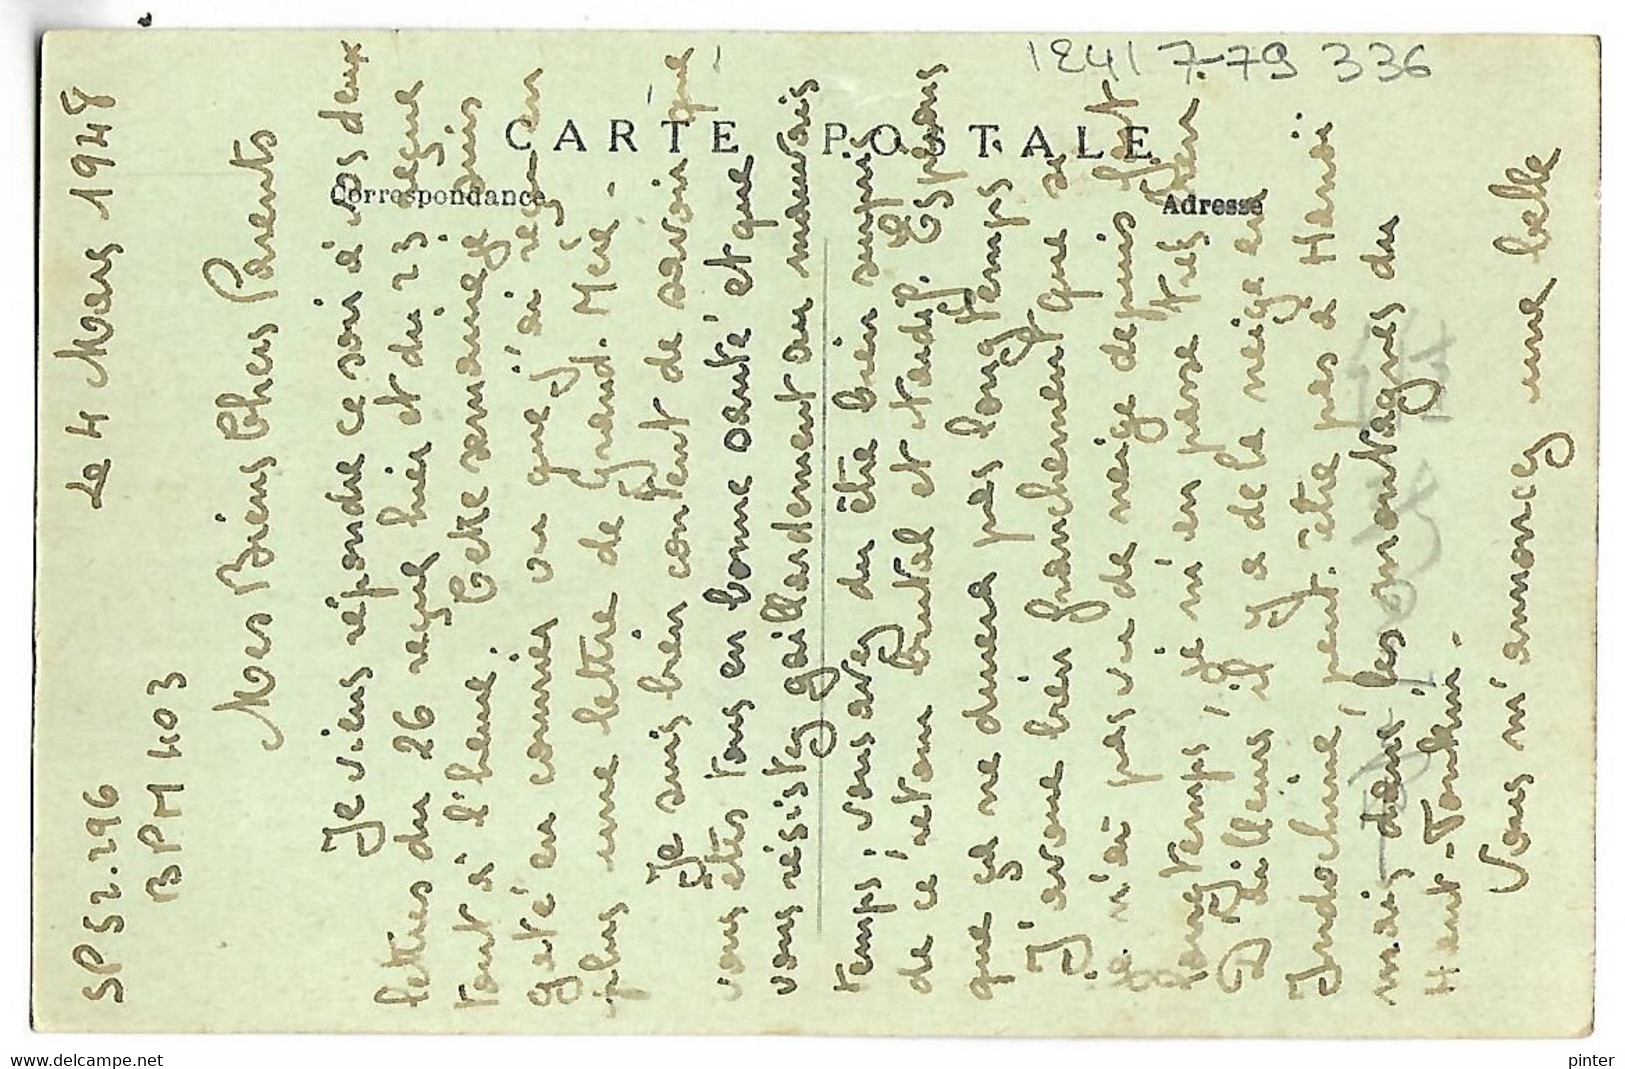 1241 7-79 336
CARTE POSTALE
Correspondance
Adresse
Le 4 Mars 1948
SP 52.296
BPM 403
Mes Biens Chers Parents
Je viens répondre ce soir à vos deux
lettres du 26 reçue hier et du 23 reçue
tout à l'heure. Cette semaine je suis
geté en courrier vu que j'ai reçu en
plus une lettre de Grand. Mère.
Je suis bien content de savoir que
vous etes tous en bonne santé et que
vous résistez gaillardement au mauvais
temps; vous avez du être bien surpris
de ce retour brutal et tardif. Espérons
que ça ne durera pas longtemps.
J'avoue bien franchement que je
n'ai pas vu de neige depuis fort
longtemps, je m'en passe très bien
D'ailleurs il y a de la neige en
Indochine, peut. être pas à Hanoï
mais dans les montagnes du
Haut-Tonkin.
Vous m'annoncez une belle
delcampe.net
pinter